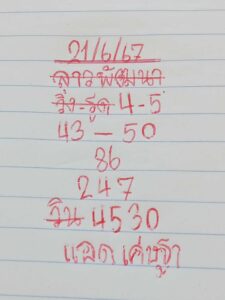 21/6/67
ลาวพัฒนา
วิ่ง-รูด 4-5
43 – 50
86
247
วิน 4530
แอด เศษฐา